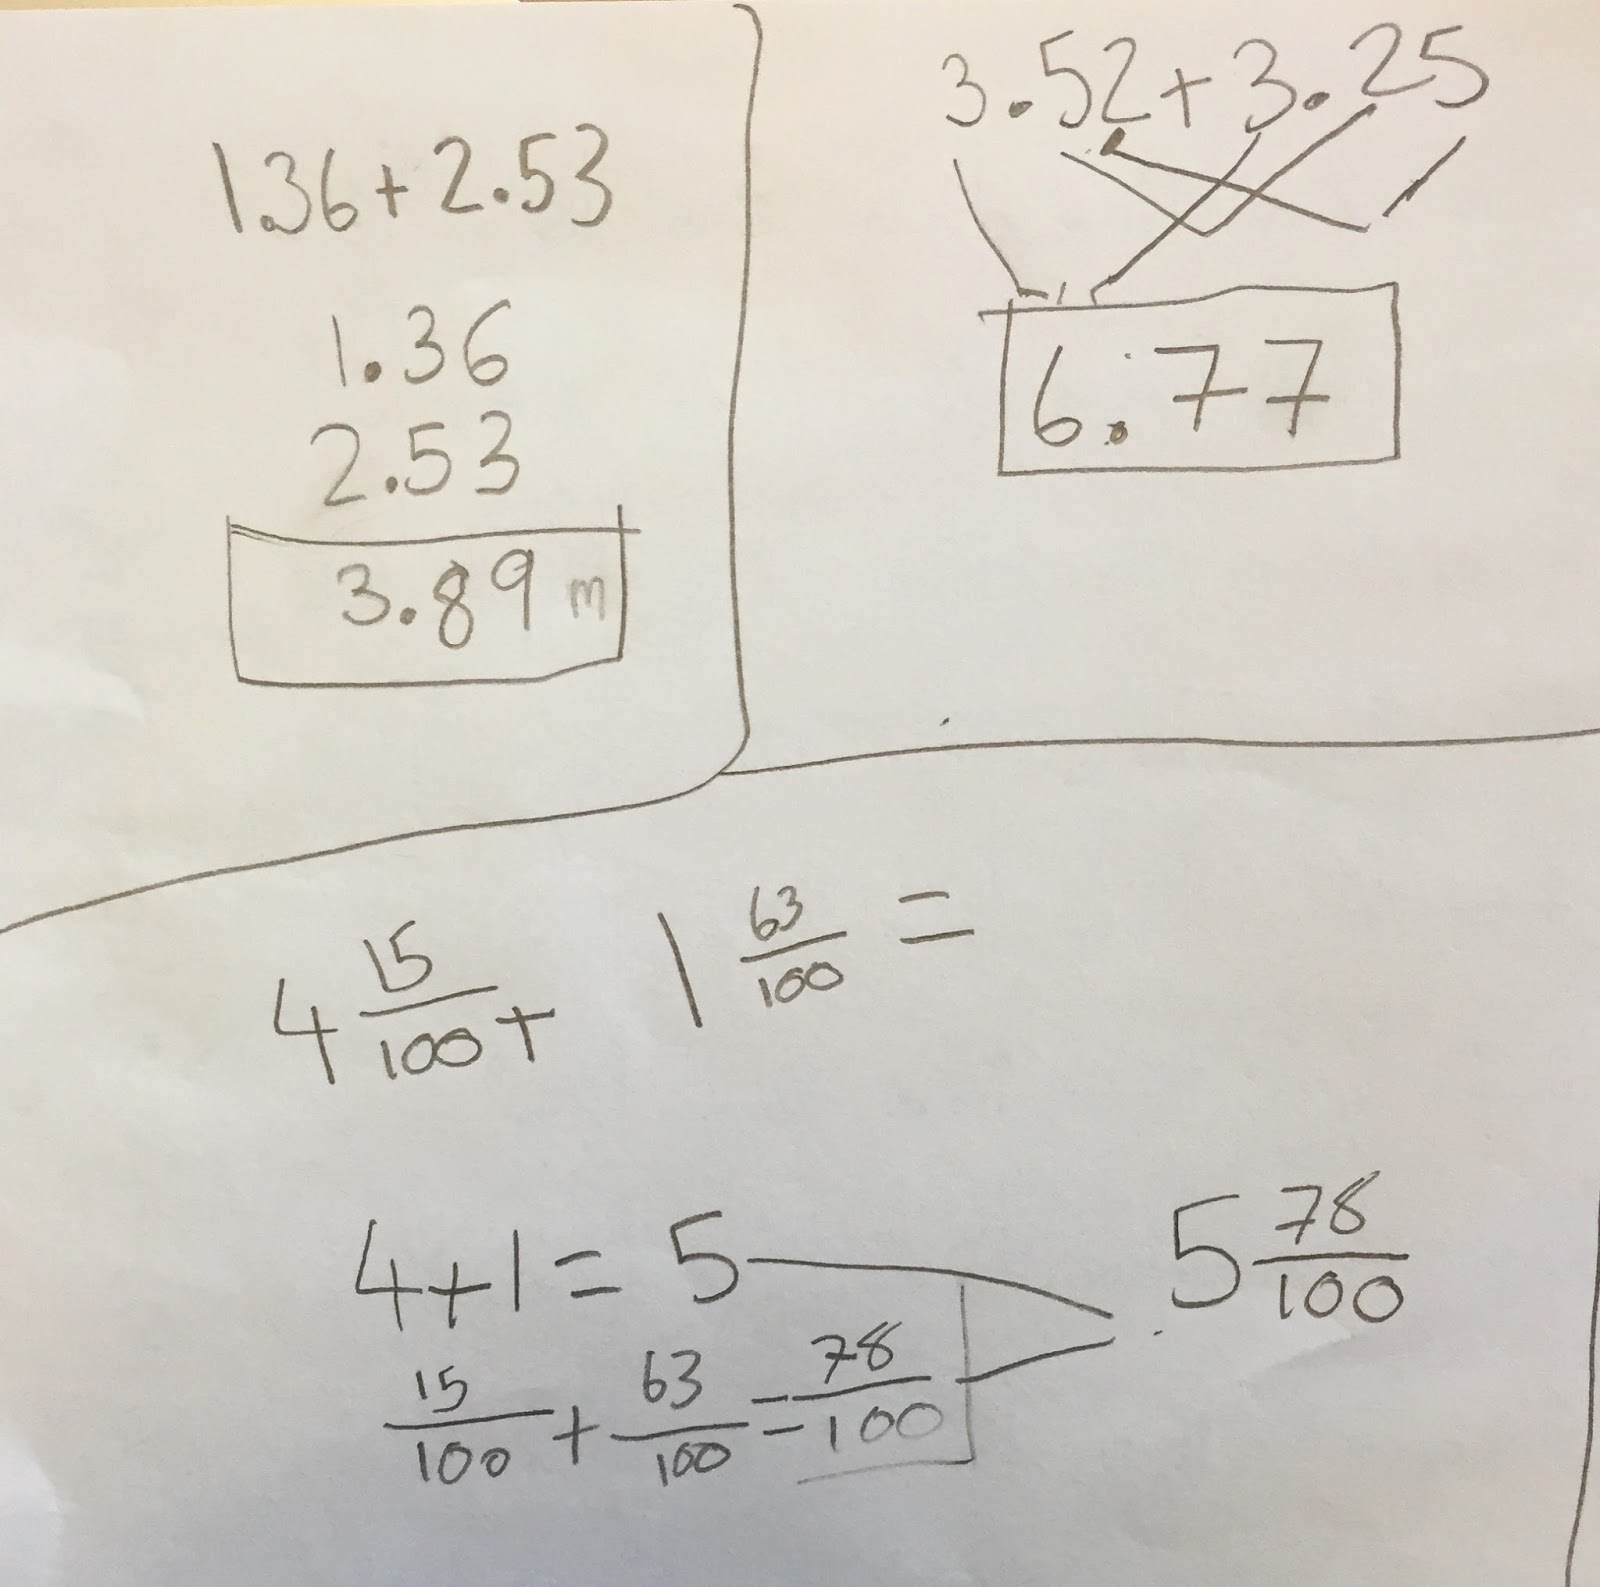 1.36+2.53
1.36
2.53
3.89 m
3.52+3.25
6.77
4 15/100 + 1 63/100 =
4+1=5
15/100 + 63/100 = 78/100
5 78/100